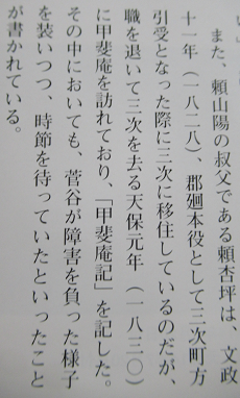 また、頼山陽の叔父である頼杏坪は、文政
十一年（一八二八）、郡廻本役として三次町方
引受となった際に三次に移住しているのだが、
職を退いて三次を去る天保元年（一八三〇）
に甲斐庵を訪れており、「甲斐庵記」を記した。
その中においても、菅谷が障害を負った様子
を装いつつ、時節を待っていたといったこと
が書かれている。